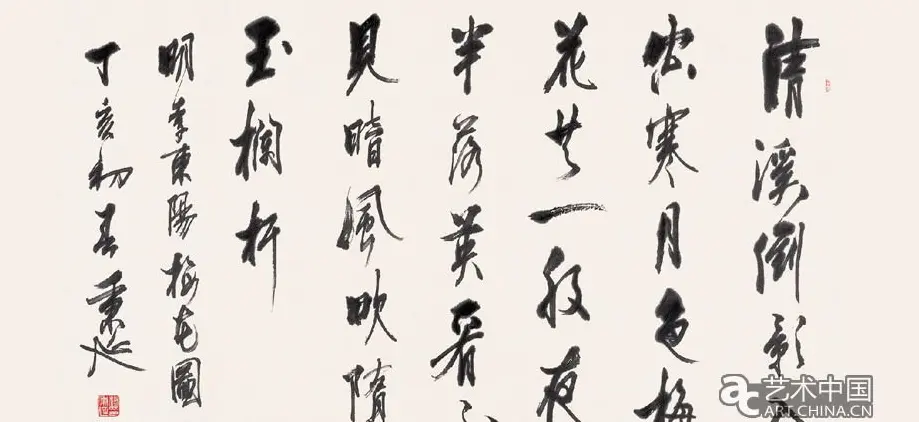 清溪倒影入
窓寒月色梅
花共一般夜
半落英看不
見暗風吹墮
玉欄杆
明李東陽梅花圖
丁亥初春
艺术中国
ART.CHINA.CN